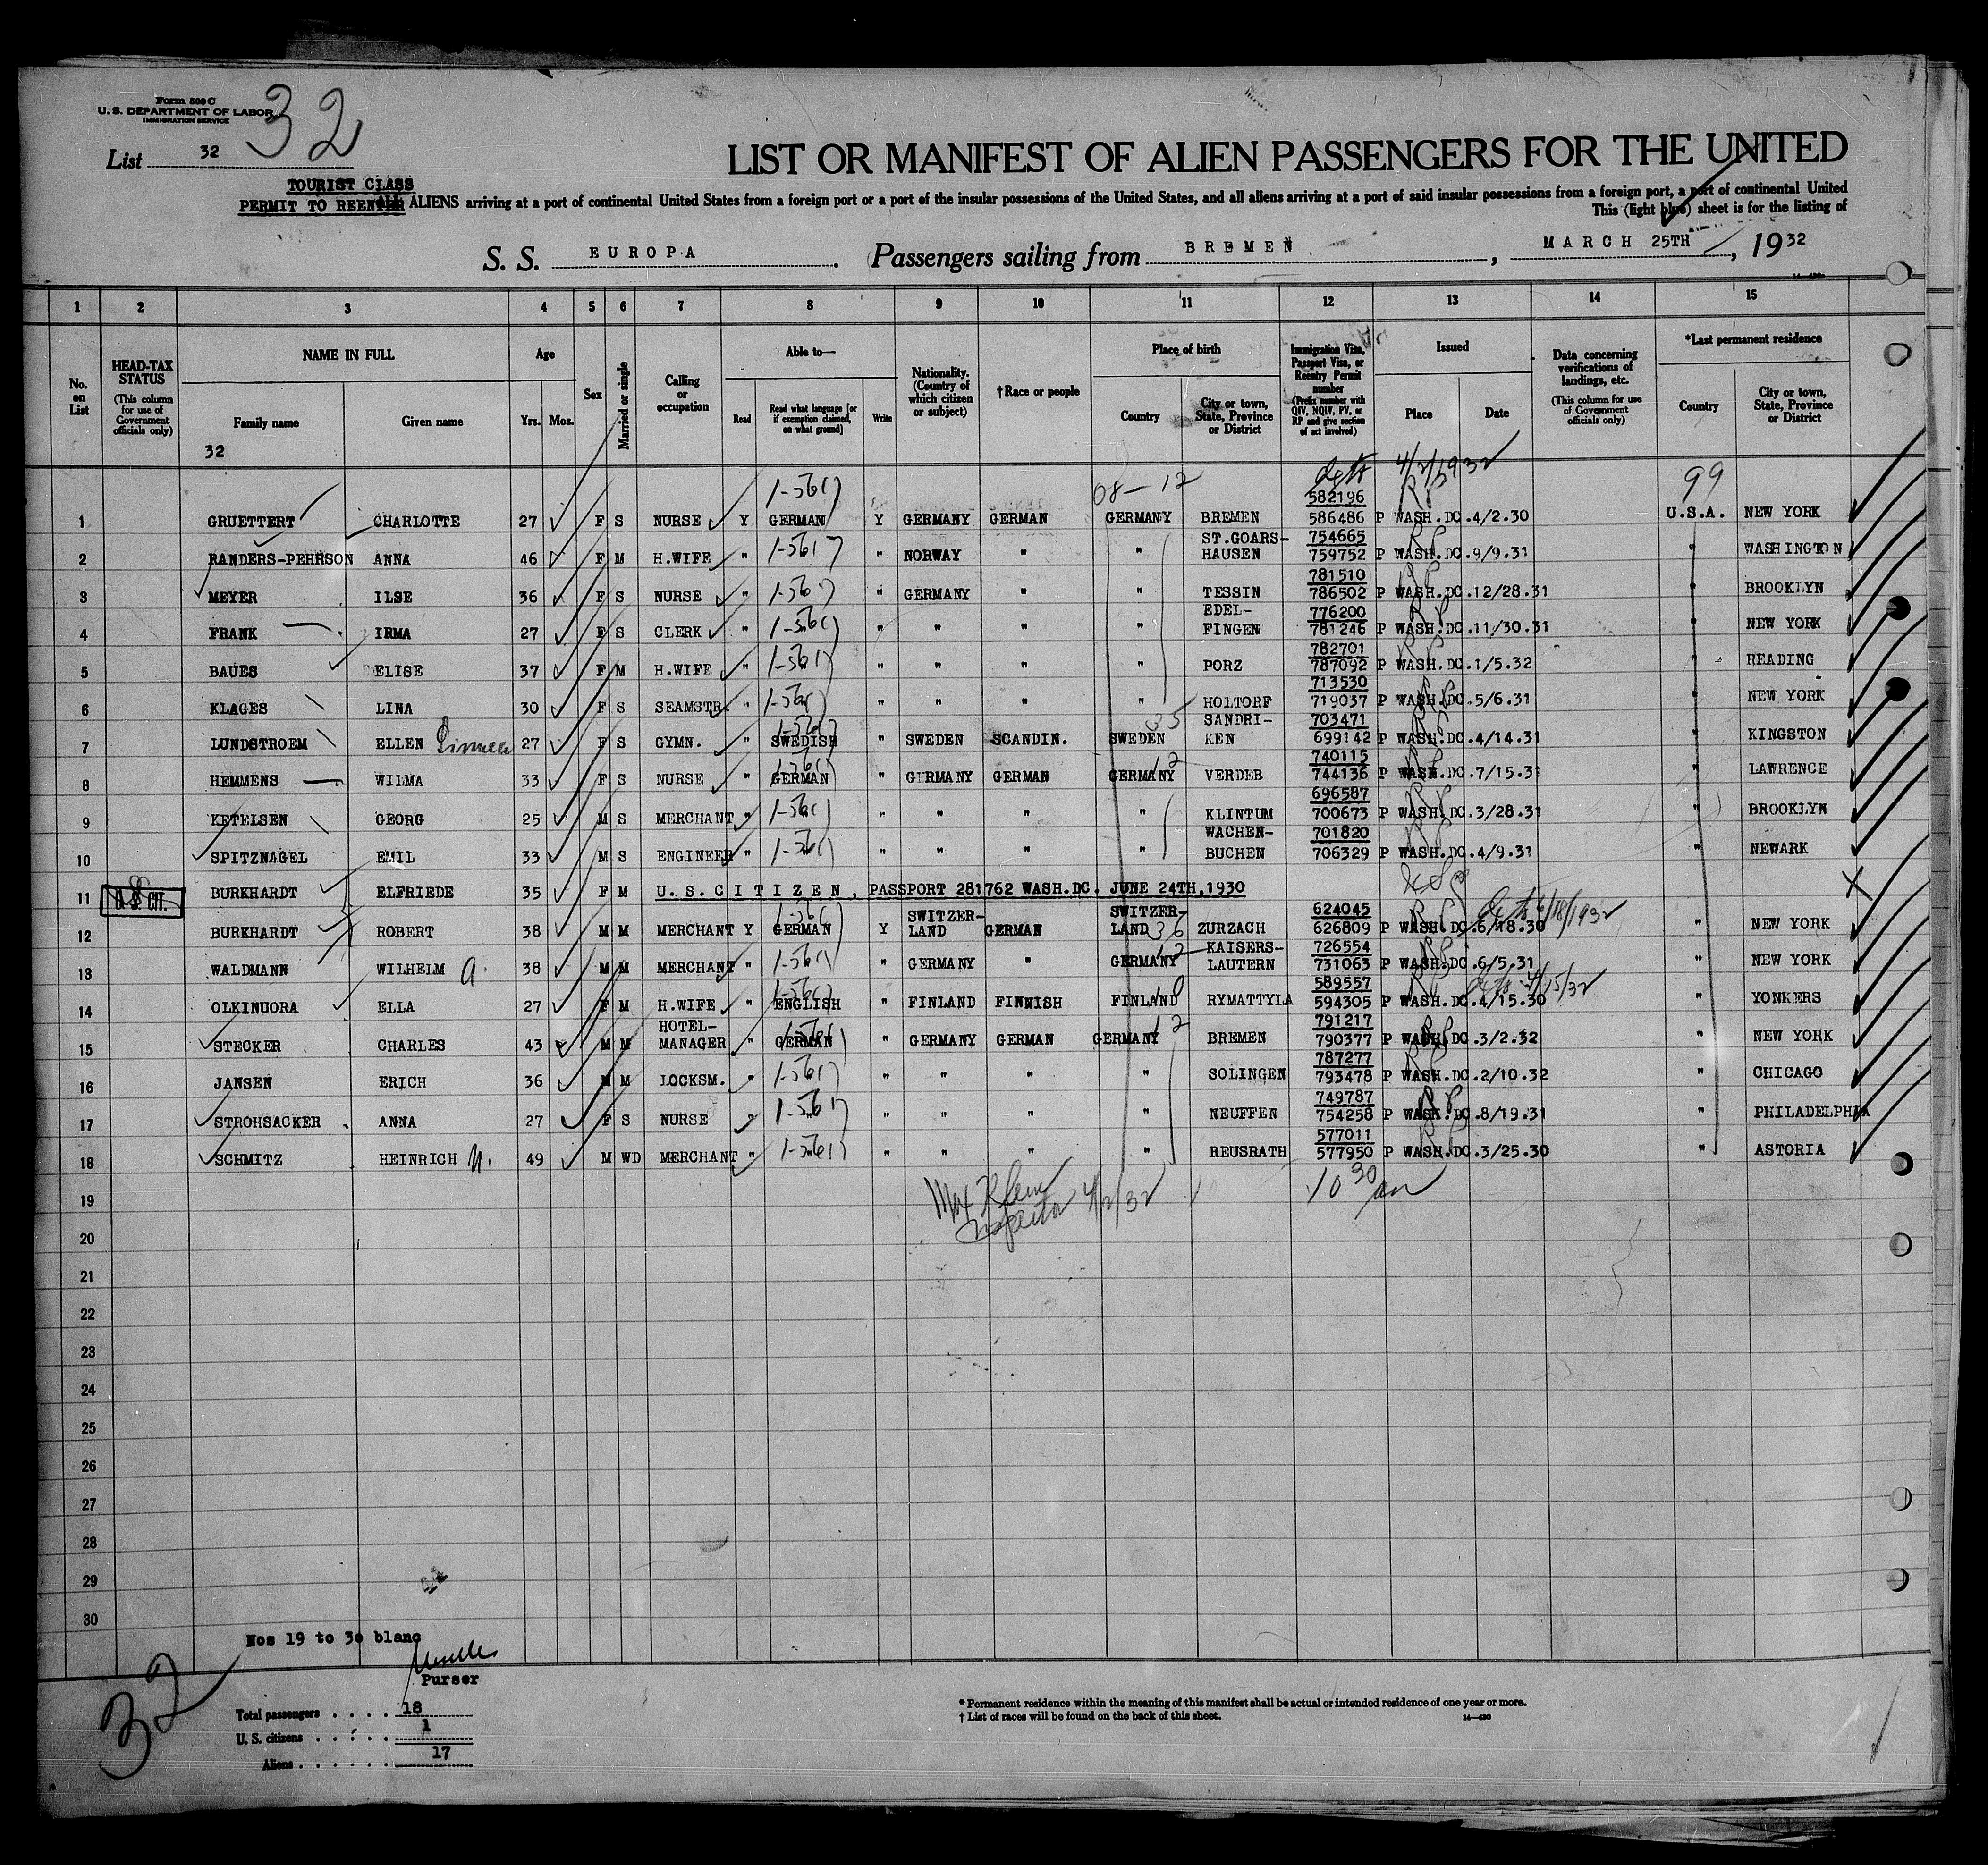 Form 500 C
U. S. DEPARTMENT OF LABOR
IMMIGRATION SERVICE
32
List 32
LIST OR MANIFEST OF ALIEN PASSENGERS FOR THE UNITED
TOURIST CLASS
PERMIT TO REENTER
ALL ALIENS arriving at a port of continental United States from a foreign port or a port of the insular possessions of the United States, and all aliens arriving at a port of said insular possessions from a foreign port, a port of continental United
This (light blue) sheet is for the listing of
S. S. EUROPA. Passengers sailing from BREMEN, MARCH 25TH, 1932
1 2 3 4 5 6 7 8 9 10 11 12 13 14 15
No. on List
HEAD-TAX STATUS (This column for use of Government officials only)
NAME IN FULL
Family name
Given name
Age
Yrs. Mos.
Sex
Married or single
Calling or occupation
Able to—
Read
Read what language [or if exemption claimed, on what ground]
Write
Nationality. (Country of which citizen or subject)
† Race or people
Place of birth
Country
City or town, State, Province or District
Immigration Visa, Passport Visa, or Reentry Permit number (Prefix number with QIV, NQIV, PV, or RP and give section of act involved)
Issued
Place
Date
Data concerning verifications of landings, etc. (This column for use of Government officials only)
*Last permanent residence
Country
City or town, State, Province or District
32
4/2/1932
08-12
99
582196
1 GRUETTERT CHARLOTTE 27 F S NURSE Y GERMAN Y GERMANY GERMAN GERMANY BREMEN 586486 P WASH.DC.4/2.30 U.S.A. NEW YORK
ST.GOARS- 754665
2 RANDERS-PEHRSON ANNA 46 F M H.WIFE " " NORWAY " " HAUSEN 759752 P WASH.DC.9/9.31 " WASHINGTON
781510
3 MEYER ILSE 36 F S NURSE " " GERMANY " " TESSIN 786502 P WASH.DC.12/28.31 " BROOKLYN
EDEL- 776200
4 FRANK IRMA 27 F S CLERK " " " " " FINGEN 781246 P WASH.DC.11/30.31 " NEW YORK
782701
5 BAUES ELISE 37 F M H.WIFE " " " " " PORZ 787092 P WASH.DC.1/5.32 " READING
713530
6 KLAGES LINA 30 F S SEAMSTR. " " " " " HOLTORF 719037 P WASH.DC.5/6.31 " NEW YORK
35 SANDRI- 703471
7 LUNDSTROEM ELLEN 27 F S GYMN. " SWEDISH " SWEDEN SCANDIN. SWEDEN KEN 699142 P WASH.DC.4/14.31 " KINGSTON
12 740115
8 HEMMENS WILMA 33 F S NURSE " GERMAN " GERMANY GERMAN GERMANY VERDEB 744136 P WASH.DC.7/15.31 " LAWRENCE
696587
9 KETELSEN GEORG 25 M S MERCHANT " " " " " KLINTUM 700673 P WASH.DC.3/28.31 " BROOKLYN
WACHEN- 701820
10 SPITZNAGEL EMIL 33 M S ENGINEER " " " " " BUCHEN 706329 P WASH.DC.4/9.31 " NEWARK
11 U. S. CIT. BURKHARDT ELFRIEDE 35 F M U.S.CITIZEN, PASSPORT 281762 WASH.DC. JUNE 24TH,1930
SWITZER- SWITZER- 624045 6/18/1932
12 BURKHARDT ROBERT 38 M M MERCHANT Y GERMAN Y LAND GERMAN LAND 36 ZURZACH 626809 P WASH.DC.6/18.30 " NEW YORK
12 KAISERS- 726554
13 WALDMANN WILHELM a. 38 M M MERCHANT " " GERMANY " GERMANY LAUTERN 731063 P WASH.DC.6/5.31 " NEW YORK
589557 4/15/32
14 OLKINUORA ELLA 27 F M H.WIFE " ENGLISH " FINLAND FINNISH FINLAND 10 RYMATTYLA 594305 P WASH.DC.4/15.30 " YONKERS
HOTEL- 12 791217
15 STECKER CHARLES 43 M M MANAGER " GERMAN " GERMANY GERMAN GERMANY BREMEN 790377 P WASH.DC.3/2.32 " NEW YORK
787277
16 JANSEN ERICH 36 M M LOCKSM. " " " " " SOLINGEN 793478 P WASH.DC.2/10.32 " CHICAGO
749787
17 STROHSACKER ANNA 27 F S NURSE " " " " " NEUFFEN 754258 P WASH.DC.8/19.31 " PHILADELPHIA
577011
18 SCHMITZ HEINRICH 49 M WD MERCHANT " " " " " REUSRATH 577950 P WASH.DC.3/25.30 " ASTORIA
19 4/2/32 10 30 am
Inspector
20
21
22
23
24
25
26
27
28
29
30
Nos 19 to 30 blanc
Purser
32
Total passengers . . . . 18
U. S. citizens . . . . 1
Aliens . . . . . . 17
* Permanent residence within the meaning of this manifest shall be actual or intended residence of one year or more.
† List of races will be found on the back of this sheet.
14—430